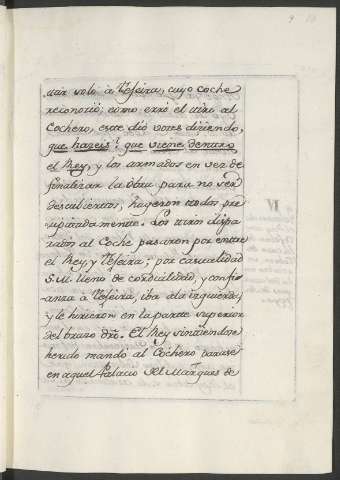 tar solo à Tefeira, cuyo coche
reconoció; como erró el tiro al
Cochero, este dió voces diciendo,
que haceis? que viene dentro
el Rey, y los armados en vez de
finalizar la obra para no ser
descubiertos, huyeron todos pre-
cipitadamente. Los tiros dispa-
rados al Coche pasaron por entre
el Rey, y Tefeira; por casualidad
S.M. lleno de cordialidad, y confi-
anza à Tefeira, iba ala izquierda,
y le hirieron en la parte superior
del brazo dro. El Rey sintiendose
herido mandó al Cochero parase
en aquel Palacio del Marques de